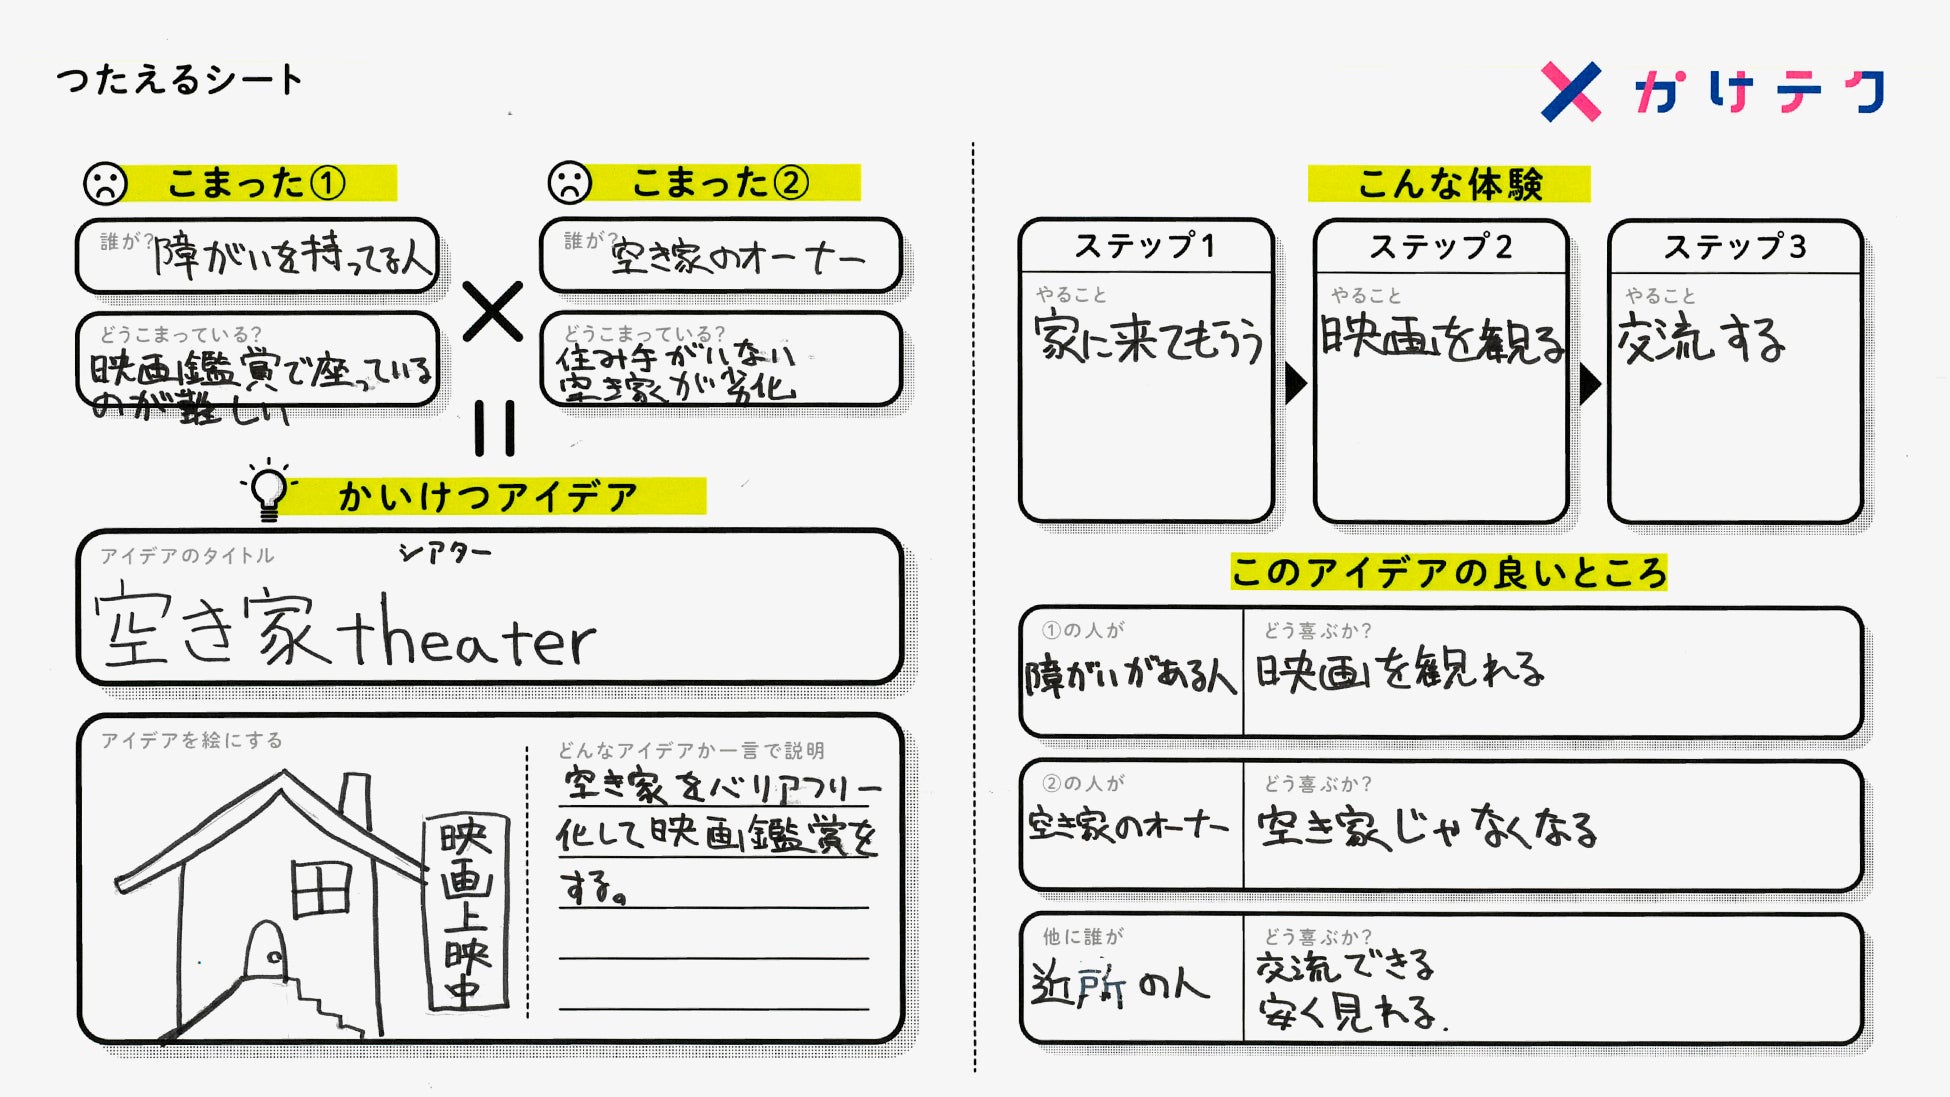 つたえるシート
かけテク
こまった①
誰が?
障がいを持ってる人
どうこまっている?
映画鑑賞で座っている
のが難しい
こまった②
誰が?
空き家のオーナー
どうこまっている?
住み手がいない
空き家が劣化
かいけつアイデア
アイデアのタイトル
シアター
空き家theater
アイデアを絵にする
映画上映中
どんなアイデアか一言で説明
空き家をバリアフリー
化して映画鑑賞を
する。
こんな体験
ステップ1
やること
家に来てもらう
ステップ2
やること
映画を観る
ステップ3
やること
交流する
このアイデアの良いところ
①の人が
障がいがある人
どう喜ぶか?
映画を観れる
②の人が
空き家のオーナー
どう喜ぶか?
空き家じゃなくなる
他に誰が
近所の人
どう喜ぶか?
交流できる
安く見れる.